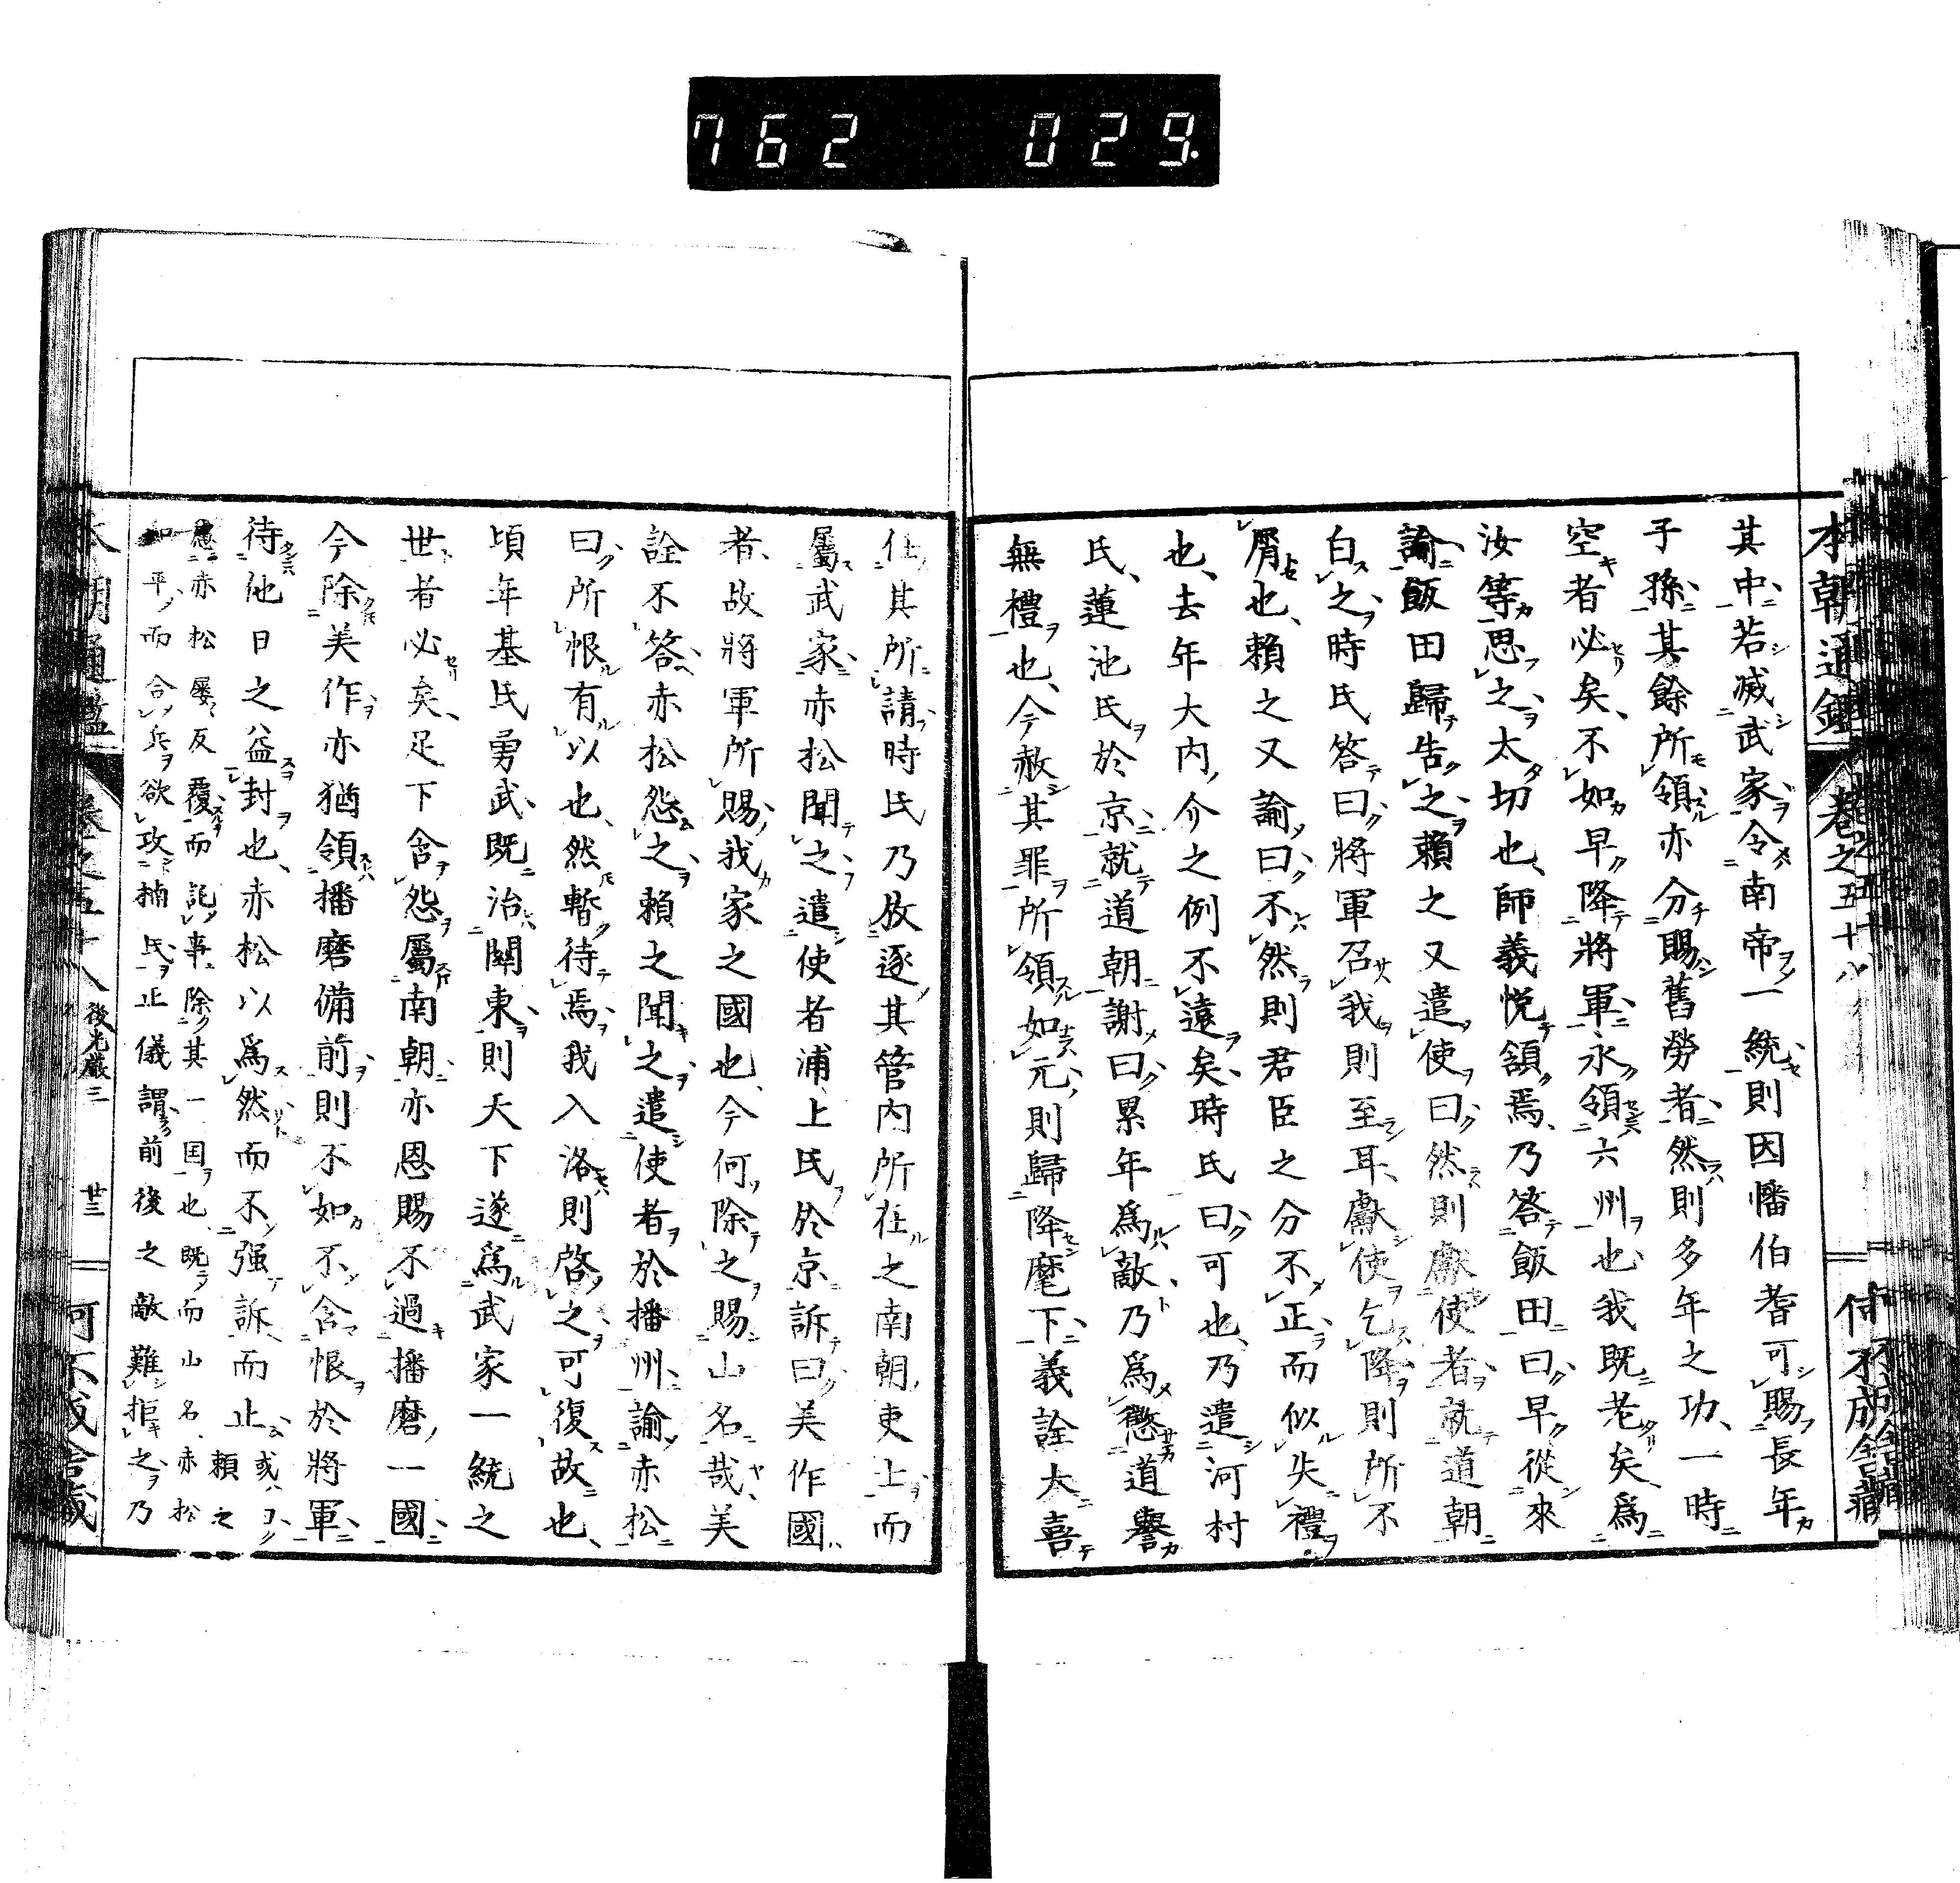 762 029.
本朝通鑑 卷之五十八 何不成舎藏
其中若滅武家令南帝一統則因幡伯耆可賜長年
子孫其餘所領亦分賜舊勞者然則多年之功一時
空者必矣不如早降將軍永領六州也我既老矣爲
汝等思之太切也師義悦領焉乃答飯田曰早從來
諭飯田歸告之賴之又遣使曰然則獻使者就道朝
白之時氏答曰將軍召我則至耳獻使乞降則所不
屑也賴之又諭曰不然則君臣之分不正而似失禮
也去年大内介之例不遠矣時氏曰可也乃遣河村
氏蓮池氏於京就道朝謝曰累年爲敵乃爲懲道譽
無禮也今赦其罪所領如元則歸降麾下義詮大喜
任其所請時氏乃放逐其管内所在之南朝吏士而
屬武家赤松聞之遣使者浦上氏於京訴曰美作國
者故將軍所賜我家之國也今何除之賜山名哉美
詮不答赤松怨之賴之聞之遣使者於播州諭赤松
曰所恨有以也然暫待焉我入洛則啓之可復故也
頃年基氏勇武既治關東則天下遂爲武家一統之
世者必矣足下含怨屬南朝亦恩賜不過播磨一國
今除美作亦猶領播磨備前則不如不含恨於將軍
待他日之益封也赤松以爲然而不强訴而止或曰賴之
慮赤松屡反覆而託事除其一国也既而山名赤松
和平而合兵欲攻楠氏正儀謂前後之敵難拒之乃
本朝通鑑 卷之五十八 後光嚴三 廿三 何不成舎藏